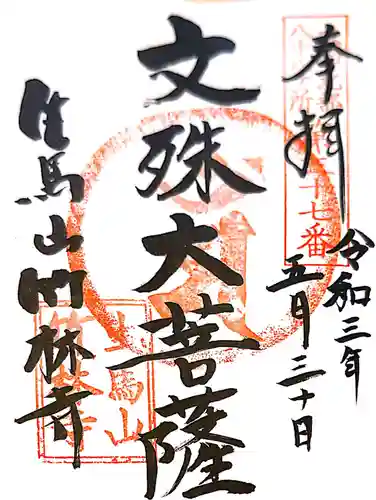 奉拝
令和三年
五月三十日
文殊大菩薩
生馬山竹林寺
十七番